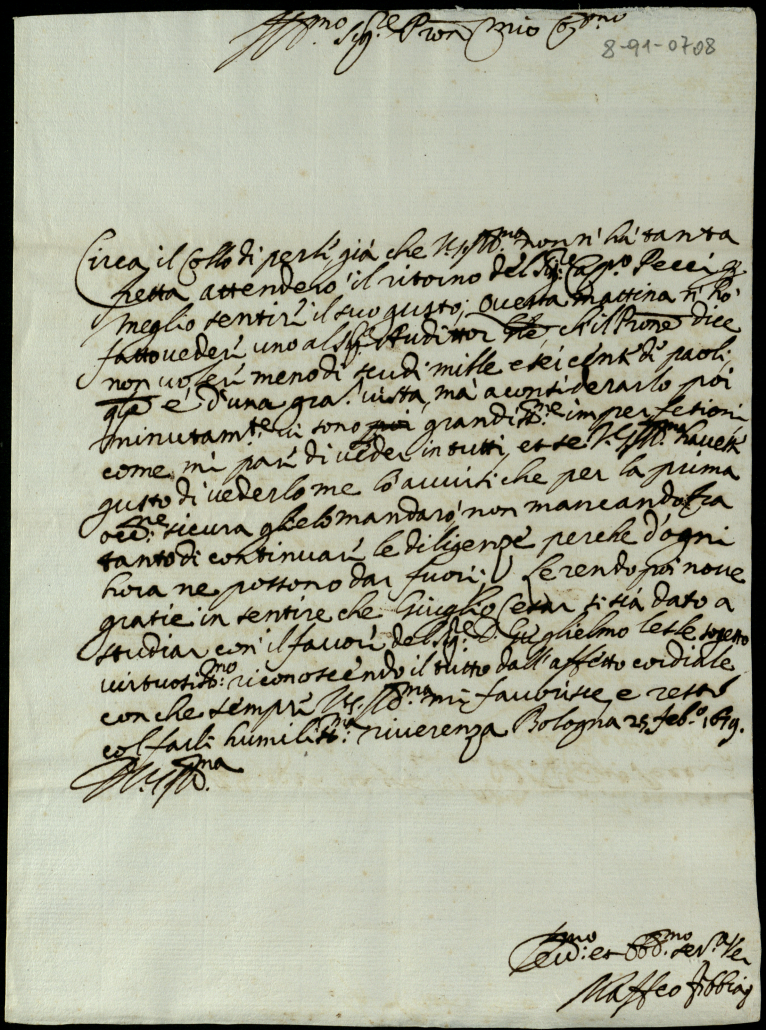 Ill.mo Sig.re Pron mio Col.mo
8-91-0708
Circa il Collo di perle già che V.S. Ill.ma non n'hà tanta
fretta attenderò il ritorno del Sig.r Cap.o Pecci p
meglio sentire il suo gusto; Questa mattina n'hò
fatto veder uno al Sig.r Audittor che il Prone dice
non voler meno di scudi mille e seicento di paoli,
q.le è d'una gra. vista, mà a considerarlo poi
minutam.te vi sono grandiss.e imperfetioni
come mi pare di veder in tutti, et se V.S. Ill.ma havesse
gusto di vederlo me lo avvisi che per la prima
occ.ne sicura glielo mandarò non mancando fra
tanto di continuare le diligenze perche d'ogni
hora ne possono dar fuori; Le rendo poi nove
gratie in sentire che Giuglio Cesar si sia dato a
studiar con il favore del Sig.r D. Guglielmo Lesle sogetto
virtuosiss.mo riconoscendo il tutto dall'affetto cordiale
con che sempre V.S. Ill.ma mi favorisce e resto
col farli humiliss.ma riverenza Bologna 25 feb.o 1679.
D V.S. Ill.ma
Dev.mo et Obb.mo ser.re
Maffeo Fibbia